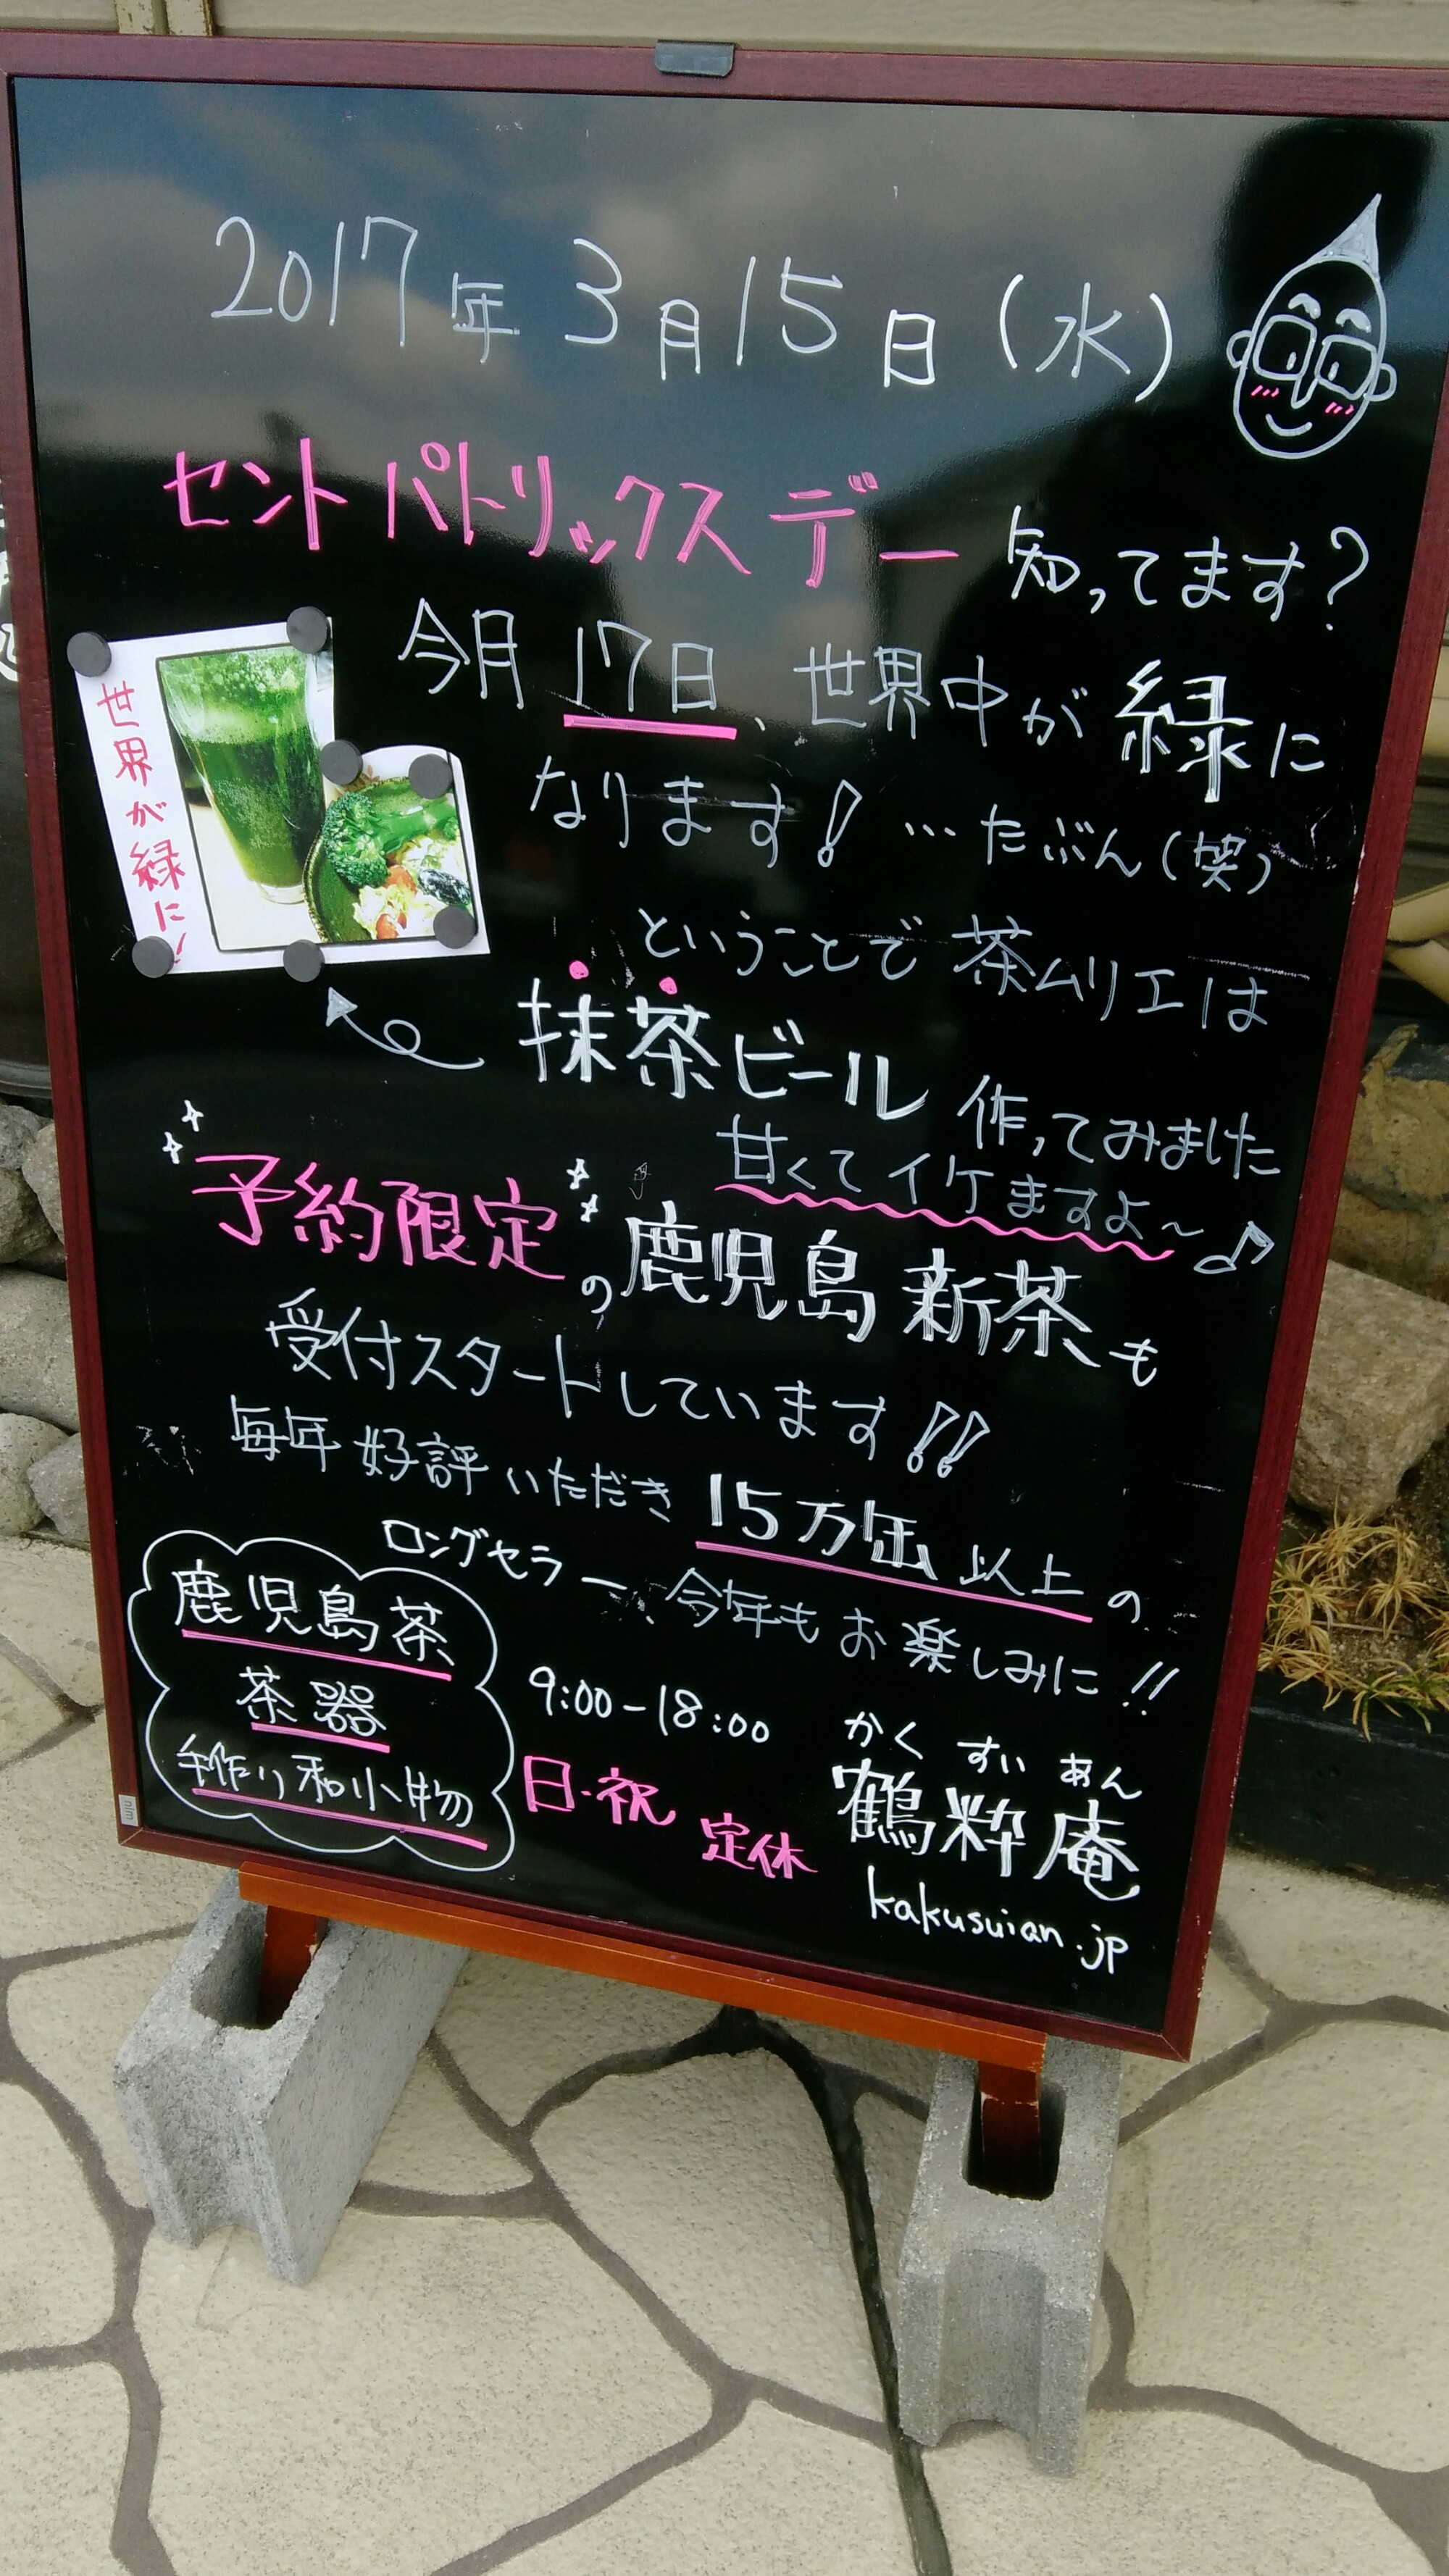 2017年3月15日(水)
セントパトリックスデー 知ってます?
今月17日、世界中が緑に
なります! …たぶん(笑)
世界が緑に!
ということで 茶ムリエは
抹茶ビール 作ってみました
甘くてイケますよ~♪
予約限定の鹿児島新茶も
受付スタートしています!!
毎年好評いただき 15万缶以上の
ロングセラー 今年もお楽しみに!!
鹿児島茶
茶器
手作り和小物
9:00-18:00
日・祝 定休
かくすいあん
鶴粋庵
kakusuian.jp